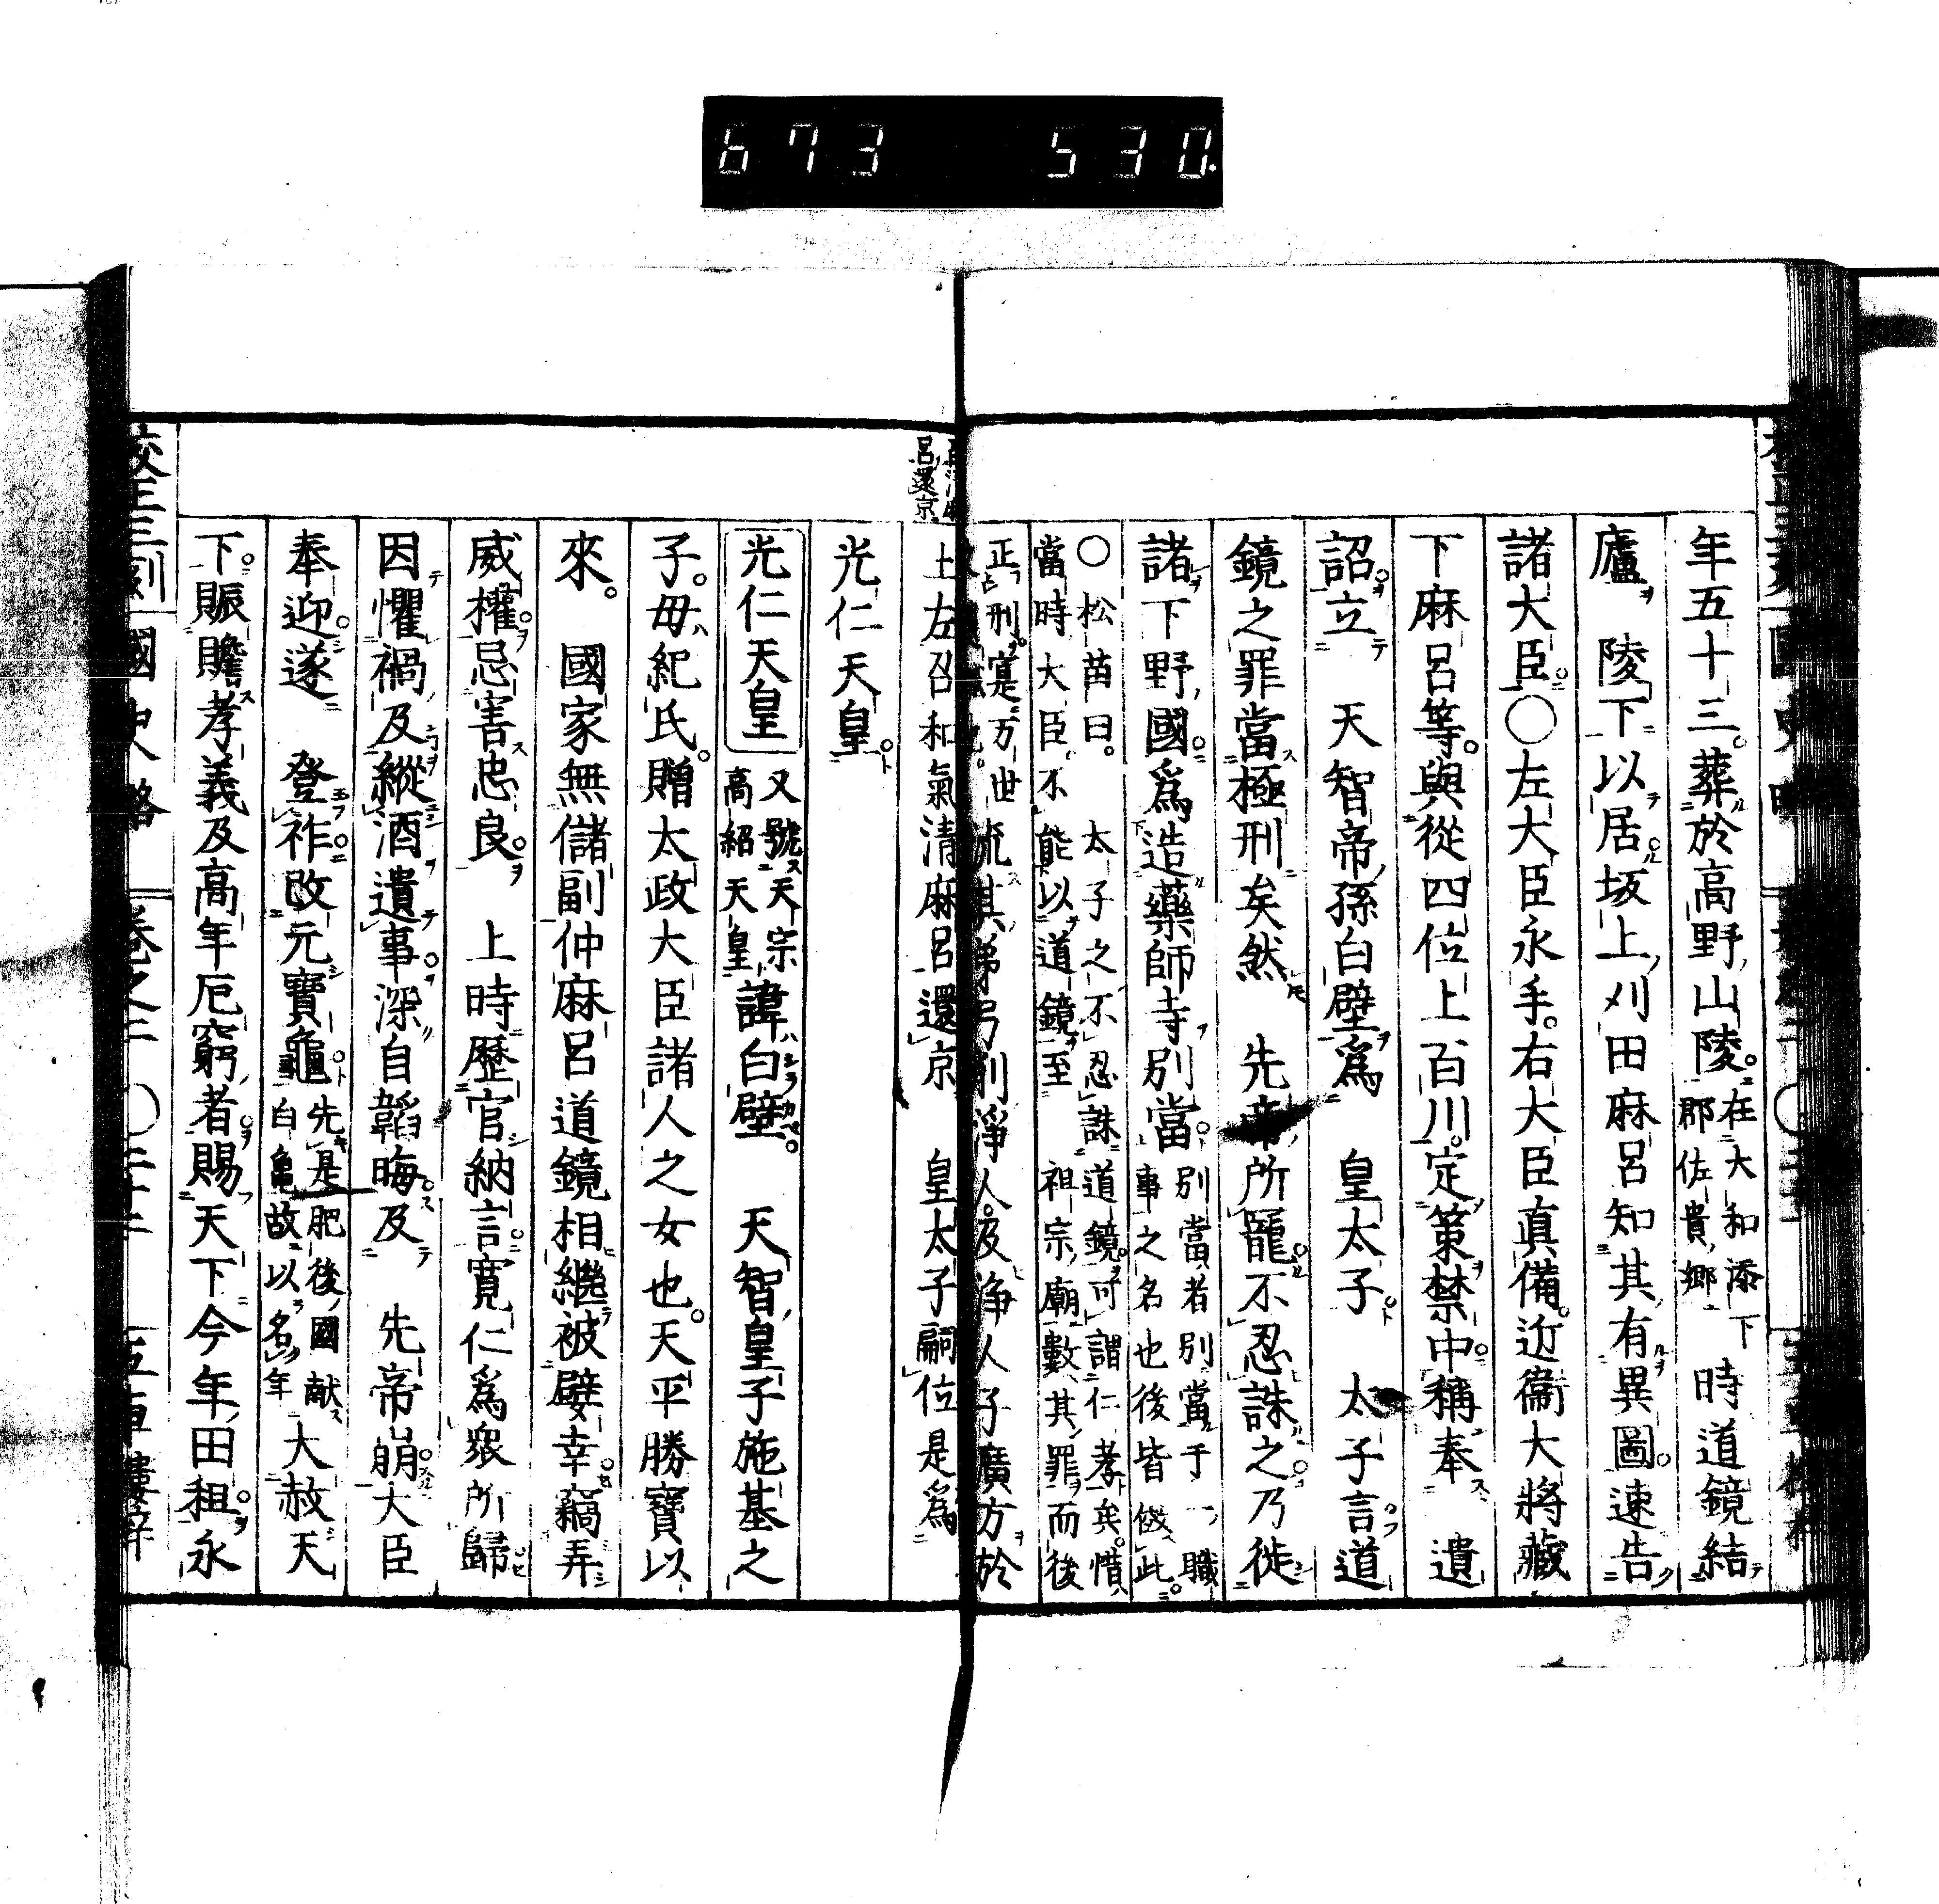 673 530.
年五十三。葬於高野山陵。在大和添下郡佐貴郷 時道鏡結
廬 陵下以居坂上刈田麻呂知其有異圖速告
諸大臣〇左大臣永手。右大臣真備。近衞大將藏
下麻呂等。與從四位上百川。定策禁中稱奉 遺
詔立 天智帝孫白壁爲 皇太子 太子言道
鏡之罪當極刑矣然 先帝所寵不忍誅之乃徙
諸下野國爲造藥師寺別當 別當者別當于一職事之名也後皆傚此。
〇松苗曰。 太子之不忍誅道鏡可謂仁孝矣。惜
當時大臣不能以道鏡至 祖宗廟數其罪而後
正刑寔万世
流其弟弓削淨人及淨人子廣方於
土左召和氣清麻呂還京 皇太子嗣位是爲
呂還京
光仁天皇。
光仁天皇 又號天宗高紹天皇 諱白壁。シラカベ 天智皇子施基之
子。母紀氏。贈太政大臣諸人之女也。天平勝寶以
來。 國家無儲副仲麻呂道鏡相繼被嬖幸竊弄
威權忌害忠良。 上時歷官納言寛仁爲衆所歸
因懼禍及縱酒遺事深自韜晦及 先帝崩大臣
奉迎遂 登祚改元寶龜 先是肥後國献白亀故以名年 大赦天
下。賑贍孝義及高年厄窮者賜天下今年田租。永
校正三刻 國史略 卷之二 〇二十二 五車樓梓